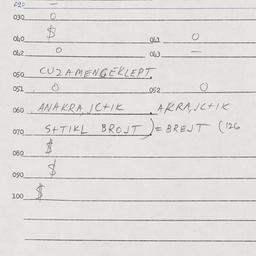 020 —
030 O
040 $ 041 O
042 O 043 —
050 CUZAMENGEKLEPT.
051 O 052 O
060 ANAKRA, JC+IK AKRA, JC+IK
070 S++IKL BROJT ) = BREJT (126
080 $
090 $
100 $